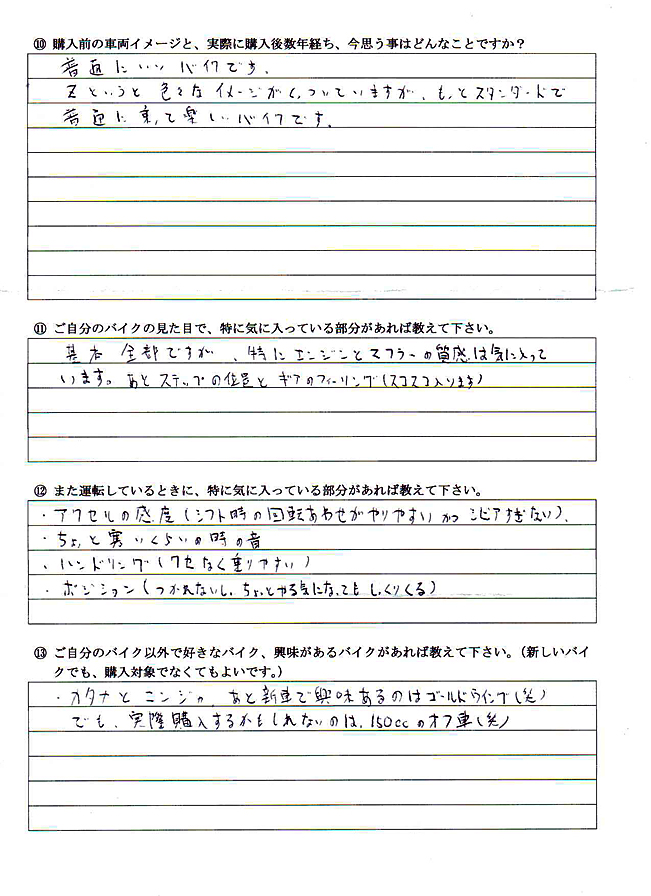 ⑩ 購入前の車両イメージと、実際に購入後数年経ち、今思う事はどんなことですか？
普通にいいバイクです。
Zというと色々なイメージがくっついていますが、もっとスタンダードで
普通に乗って楽しいバイクです。
⑪ ご自分のバイクの見た目で、特に気に入っている部分があれば教えて下さい。
基本全部ですが、特にエンジンとマフラーの質感は気に入って
います。あとステップの位置とギアのフィーリング（スコスコ入ります）
⑫ また運転しているときに、特に気に入っている部分があれば教えて下さい。
・アクセルの感度（シフト時の回転あわせがやりやすいかつシビアすぎない）、
・ちょっと寒いくらいの時の音
・ハンドリング（クセなく乗りやすい）
・ポジション（つかれないし、ちょっとやる気になってもしっくりくる）
⑬ ご自分のバイク以外で好きなバイク、興味があるバイクがあれば教えて下さい。（新しいバイ
クでも、購入対象でなくてもよいです。）
・カタナとニンジャ、あと新車で興味あるのはゴールドウィング（笑）
でも、実際購入するかもしれないのは、150ccのオフ車（笑）